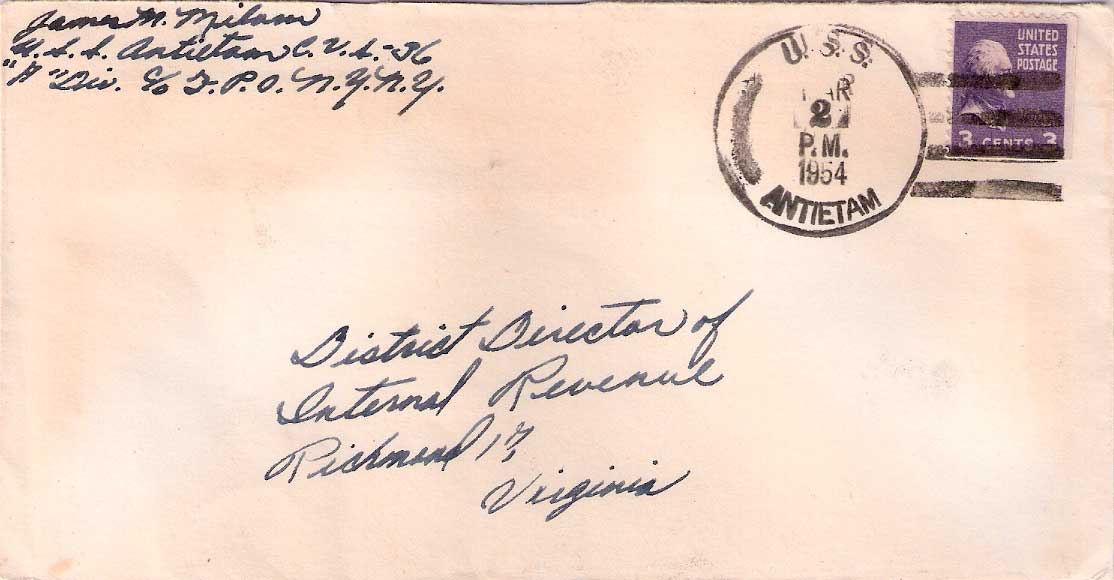 James M. Milam
U.S.S. Antietam C.V.S.-36
"A" Div. c/o F.P.O. N.Y. N.Y.
U. S. S.
MAR
2
P.M.
1954
ANTIETAM
UNITED
STATES
POSTAGE
3 CENTS 3
District Director of
Internal Revenue
Richmond 17,
Virginia